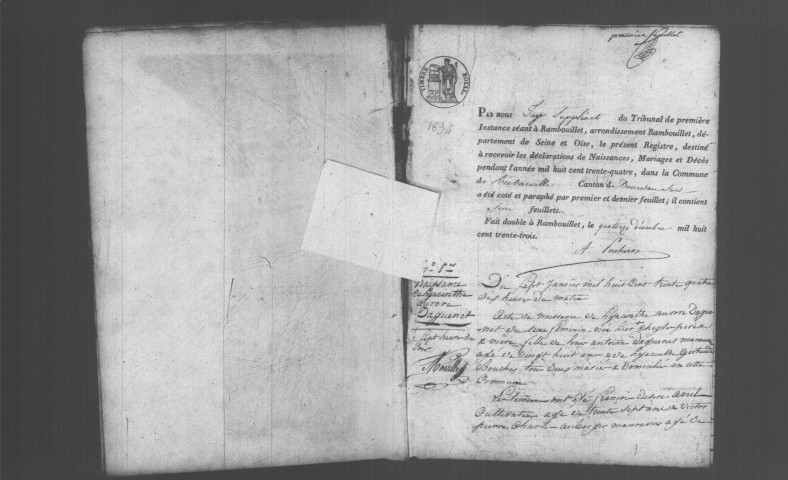 premier feuillet
TIMBRE ROYAL
1834
PAR nous Juge Suppléant du Tribunal de première
Instance séant à Rambouillet, arrondissement Rambouillet, dé-
partement de Seine et Oise, le présent Registre, destiné
à recevoir les déclarations de Naissances, Mariages et Décès
pendant l'année mil huit cent trente-quatre, dans la Commune
de Canton d
a été coté et paraphé par premier et dernier feuillet; il contient
feuillets.
Fait double à Rambouillet, le quatorze décembre mil huit
cent trente-trois.
Naissance
de hyacinthe
aurore
Daguenet
sept heure du
soir
Du sept Janvier mil huit Cent trente quatre
dix heure du matin
Acte de naissance de hyacinthe aurore Dague
net du sexe féminin née hier chez le père
& mère fille de Louis antoine Daguenet
age de vingt huit ans & de hyacinthe
Boucher tous deux mariés & Domicilié en cette
Commune
Les témoins ont été françois avril
Cultivateur agé de trente sept ans & victor
pierre agé de